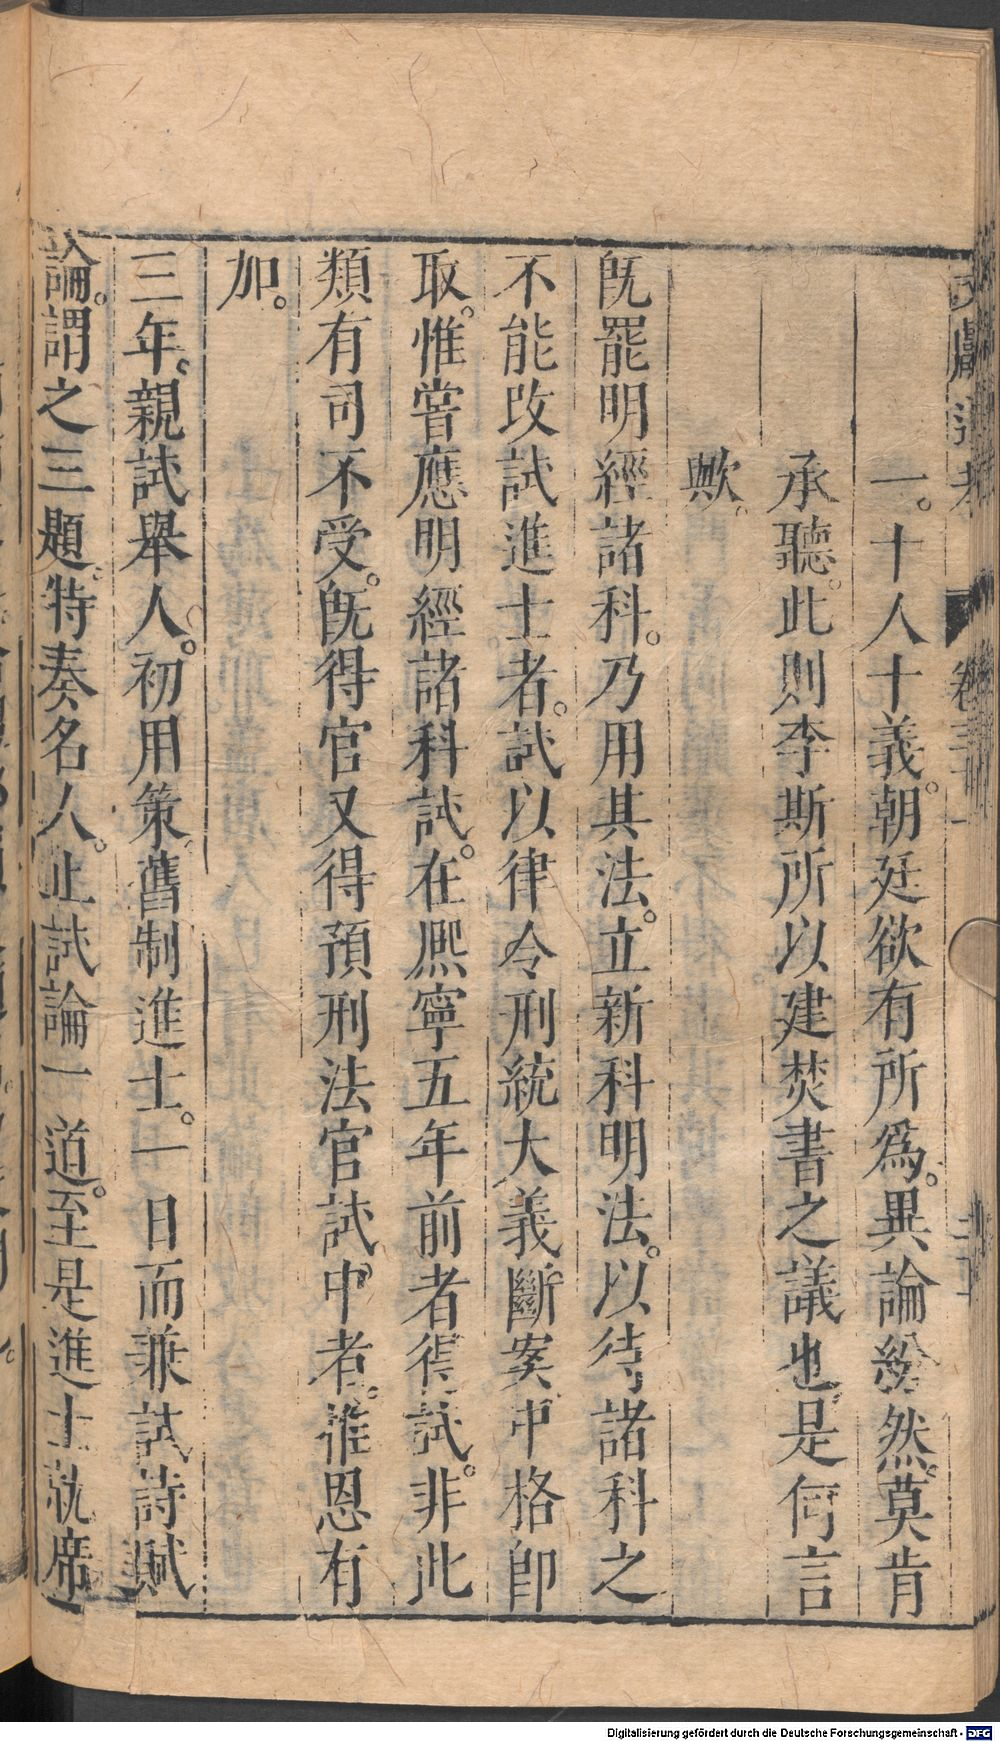 一。十人十義。朝廷欲有所爲。異論紛然。莫肯
承聽。此則李斯所以建焚書之議也。是何言
歟。
旣罷明經諸科。乃用其法。立新科明法。以待諸科之
不能攺試進士者。試以律令刑統大義。斷案中格卽
取。惟嘗應明經諸科試。在熈寧五年前者得試。非此
類有司不受。旣得官又得預刑法官試。中者。推恩有
加。
三年。親試舉人。初用策。舊制進士。一日而兼試詩賦
論。謂之三題。特奏名人。止試論一道。至是進士就席
Digitalisierung gefördert durch die Deutsche Forschungsgemeinschaft - DFG